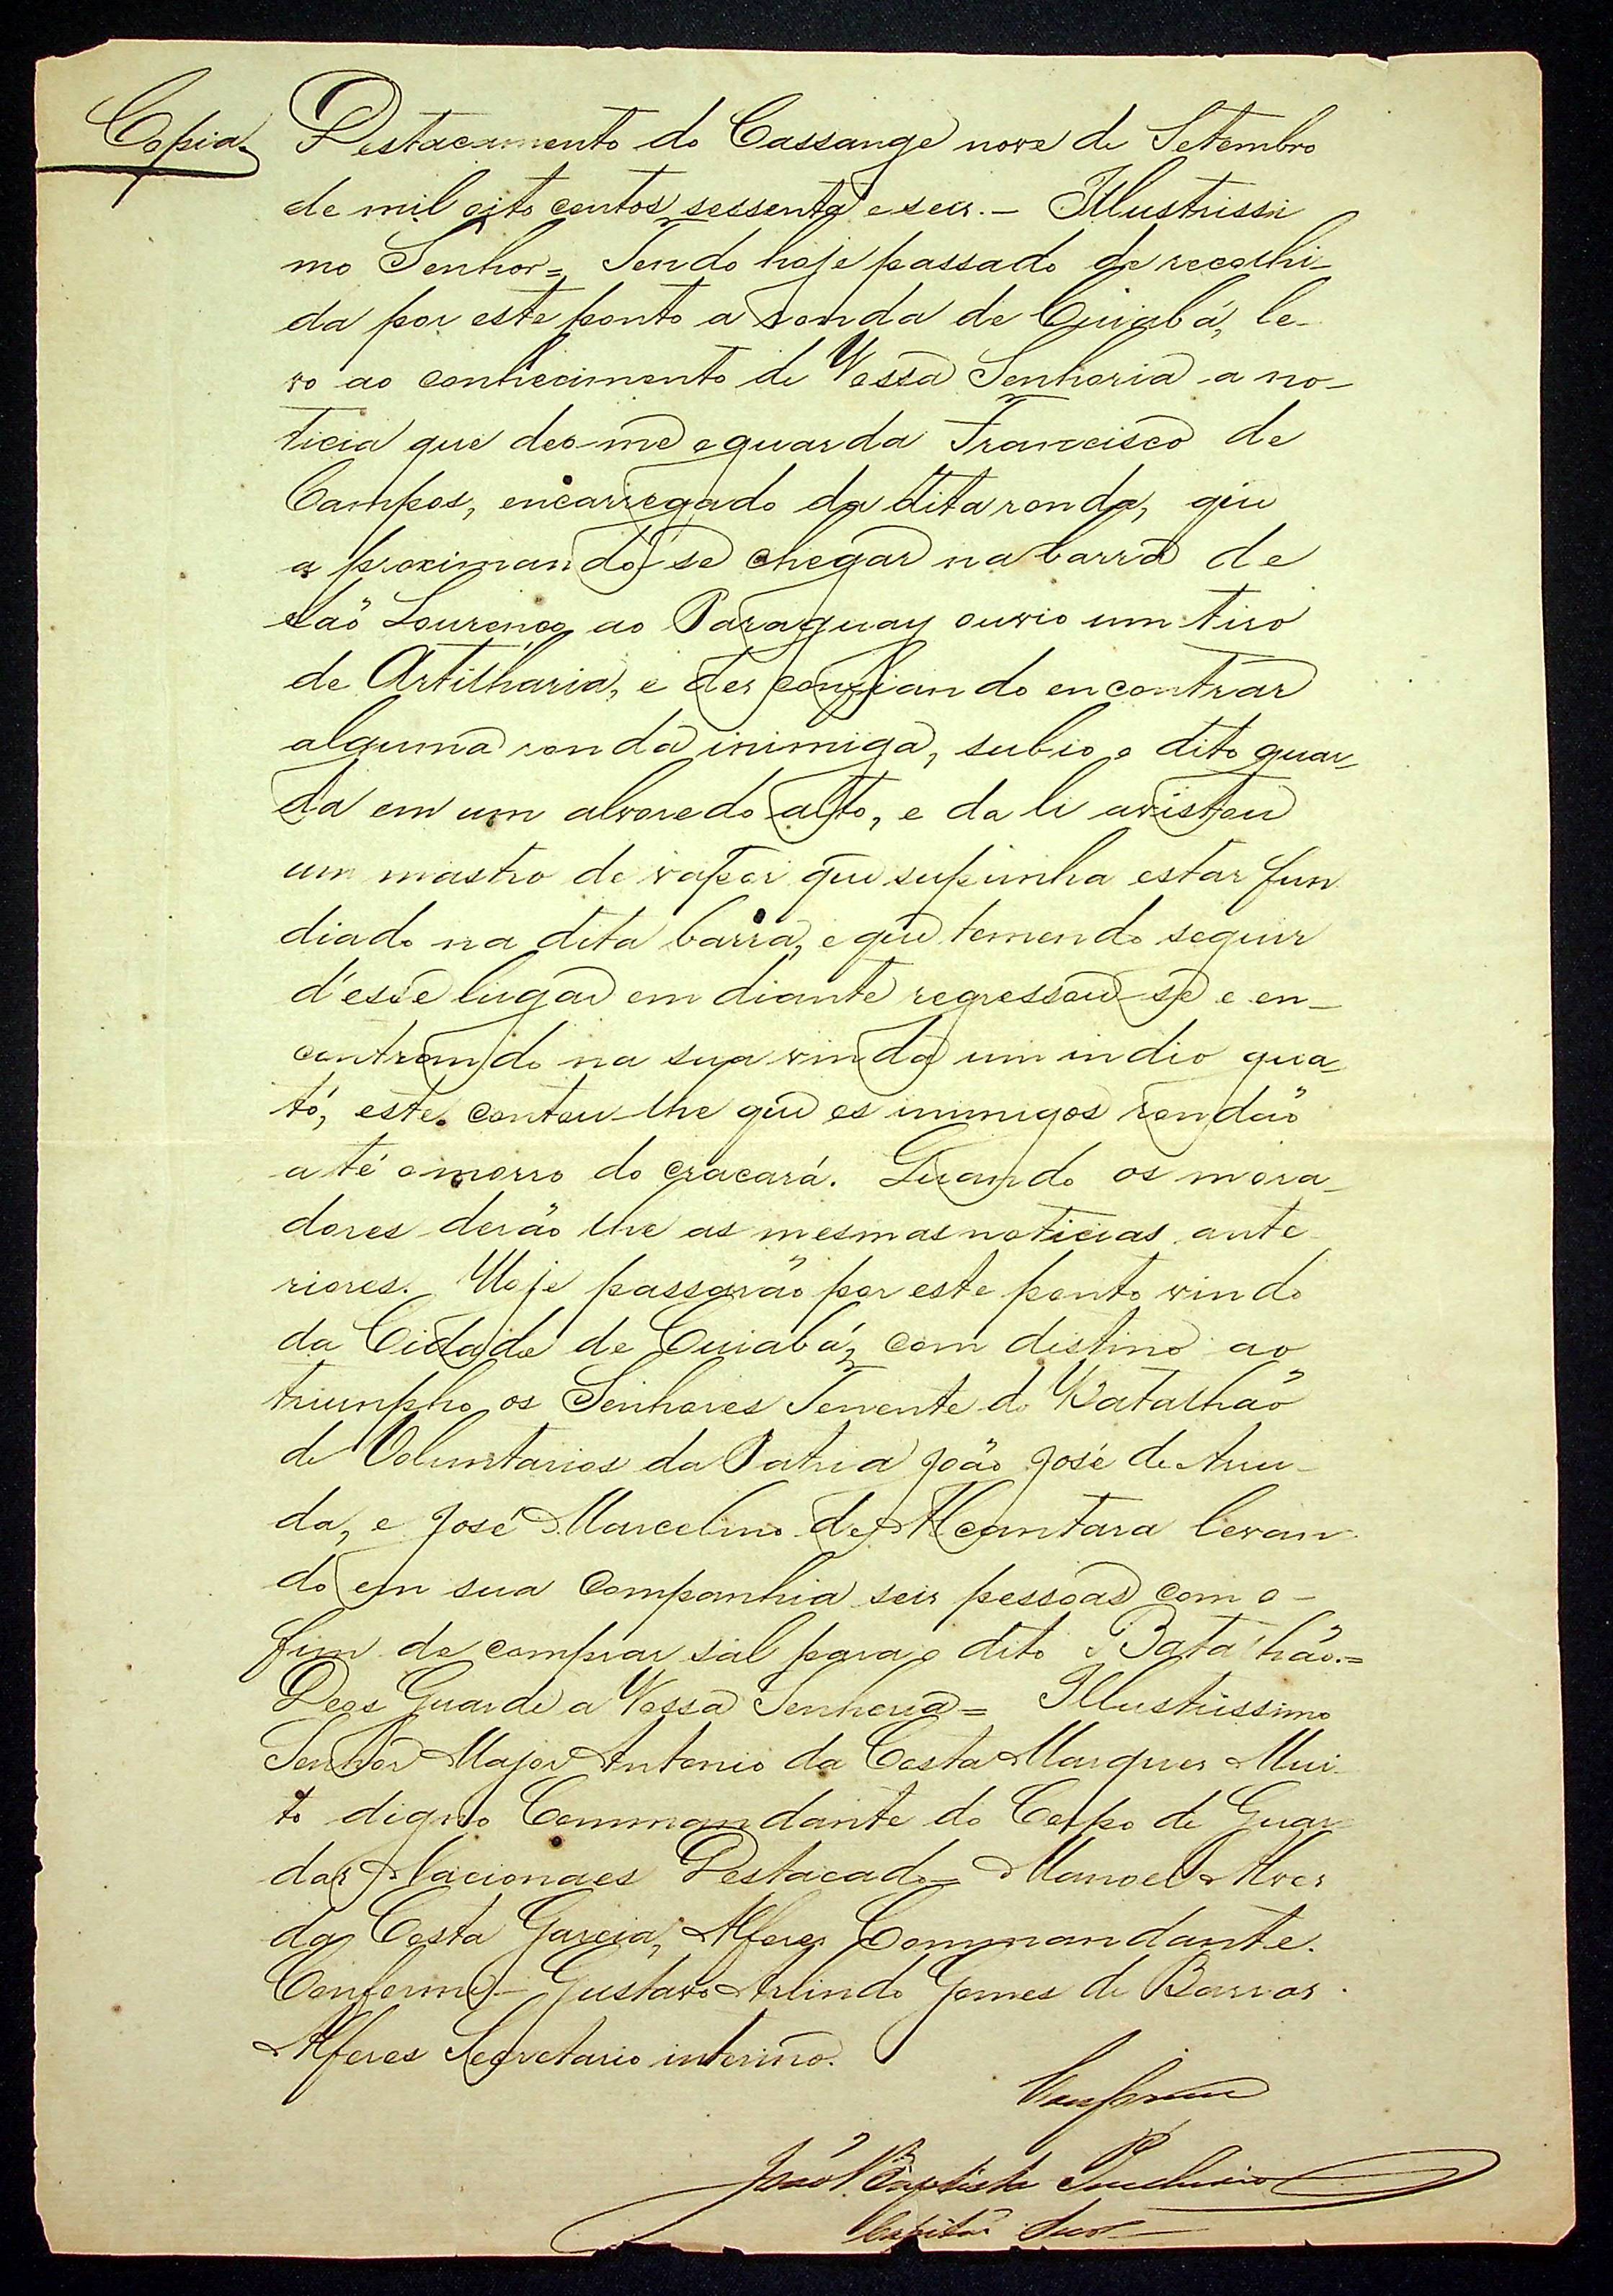 Copia. Destacamento do Cassange nove de Setembro
de mil oito centos sessenta e seis. - Illustrissi
mo Senhor = Tendo hoje passado de recolhi-
da por este ponto a ronda de Cuiabá, le-
vo ao conhecimento de Vossa Senhoria a no-
ticia que deo-me o guarda Francisco de
Campos, encarregado da dita ronda, que
a proximando-se chegar na barra de
São Lourenço ao Paraguay ouvio um tiro
de Artilharia, e desconfiando encontrar
alguma ronda inimiga, subio o dito guar-
da em um alvoredo alto, e da li avistou
um mastro de vapor que supunha estar fun
diado na dita barra, e que temendo seguir
d'esse lugar em diante regressou-se e en-
contrando na sua vinda um indio gua-
tó, este contou-lhe que os inimigos rondão
até o morro do cracará. Quando os mora-
dores derão lhe as mesmas noticias ante-
riores. Hoje passarão por este ponto vindo
da Cidade de Cuiabá, com distino ao
triumpho os Senhores Tenente do Batalhão
de Voluntarios da Patria João José de Arru-
da, e José Marcelino de Alcantara levan-
do em sua Companhia seis pessoas com o -
fim de comprar sal para o dito Batalhão. =
Deos Guarde a Vossa Senhoria = Illustrissimo
Senhor Major Antonio da Costa Marques Mui-
to digno Commandante do Corpo de Guar-
das Nacionaes Destacado = Manoel Alves
da Costa Garcia, Alferes Commandante.
Conforme - Gustavo Arlindo Gomes de Barros.
Alferes Secretario interino.
Conforme
João Baptista
Capitão